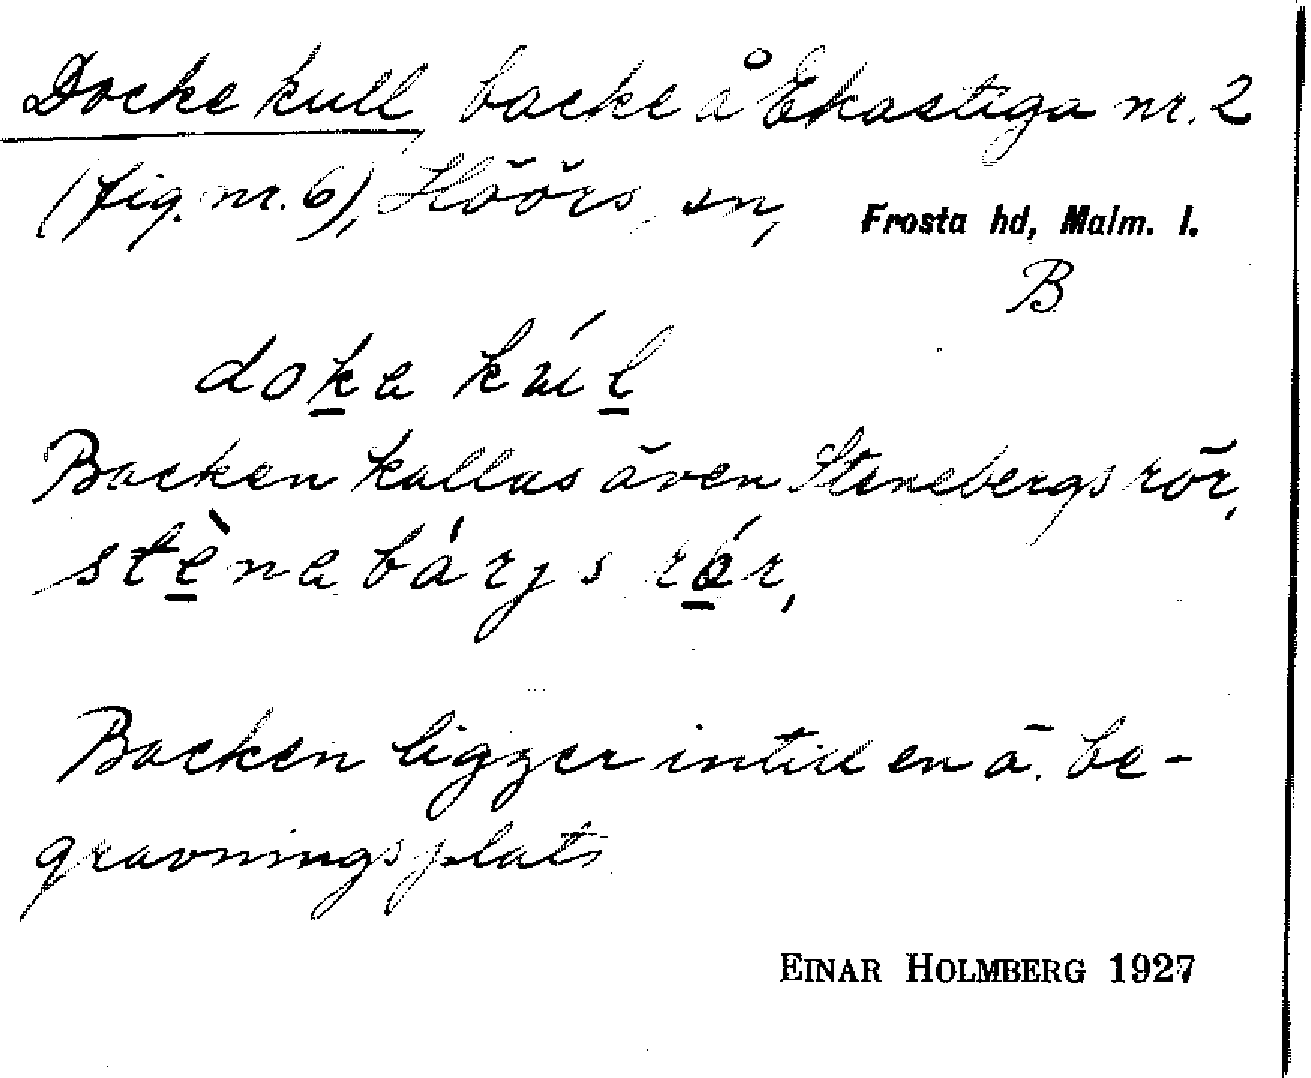 Docke kull, backe å Ekastiga nr. 2
(fig. nr. 6), Höörs sn, Frosta hd, Malm. l.
B
doka kúl
Backen kallas även Stenebergs rör,
stèna bárjs rór,
Backen ligger intill en ä. be-
gravningsplats
EINAR HOLMBERG 1927